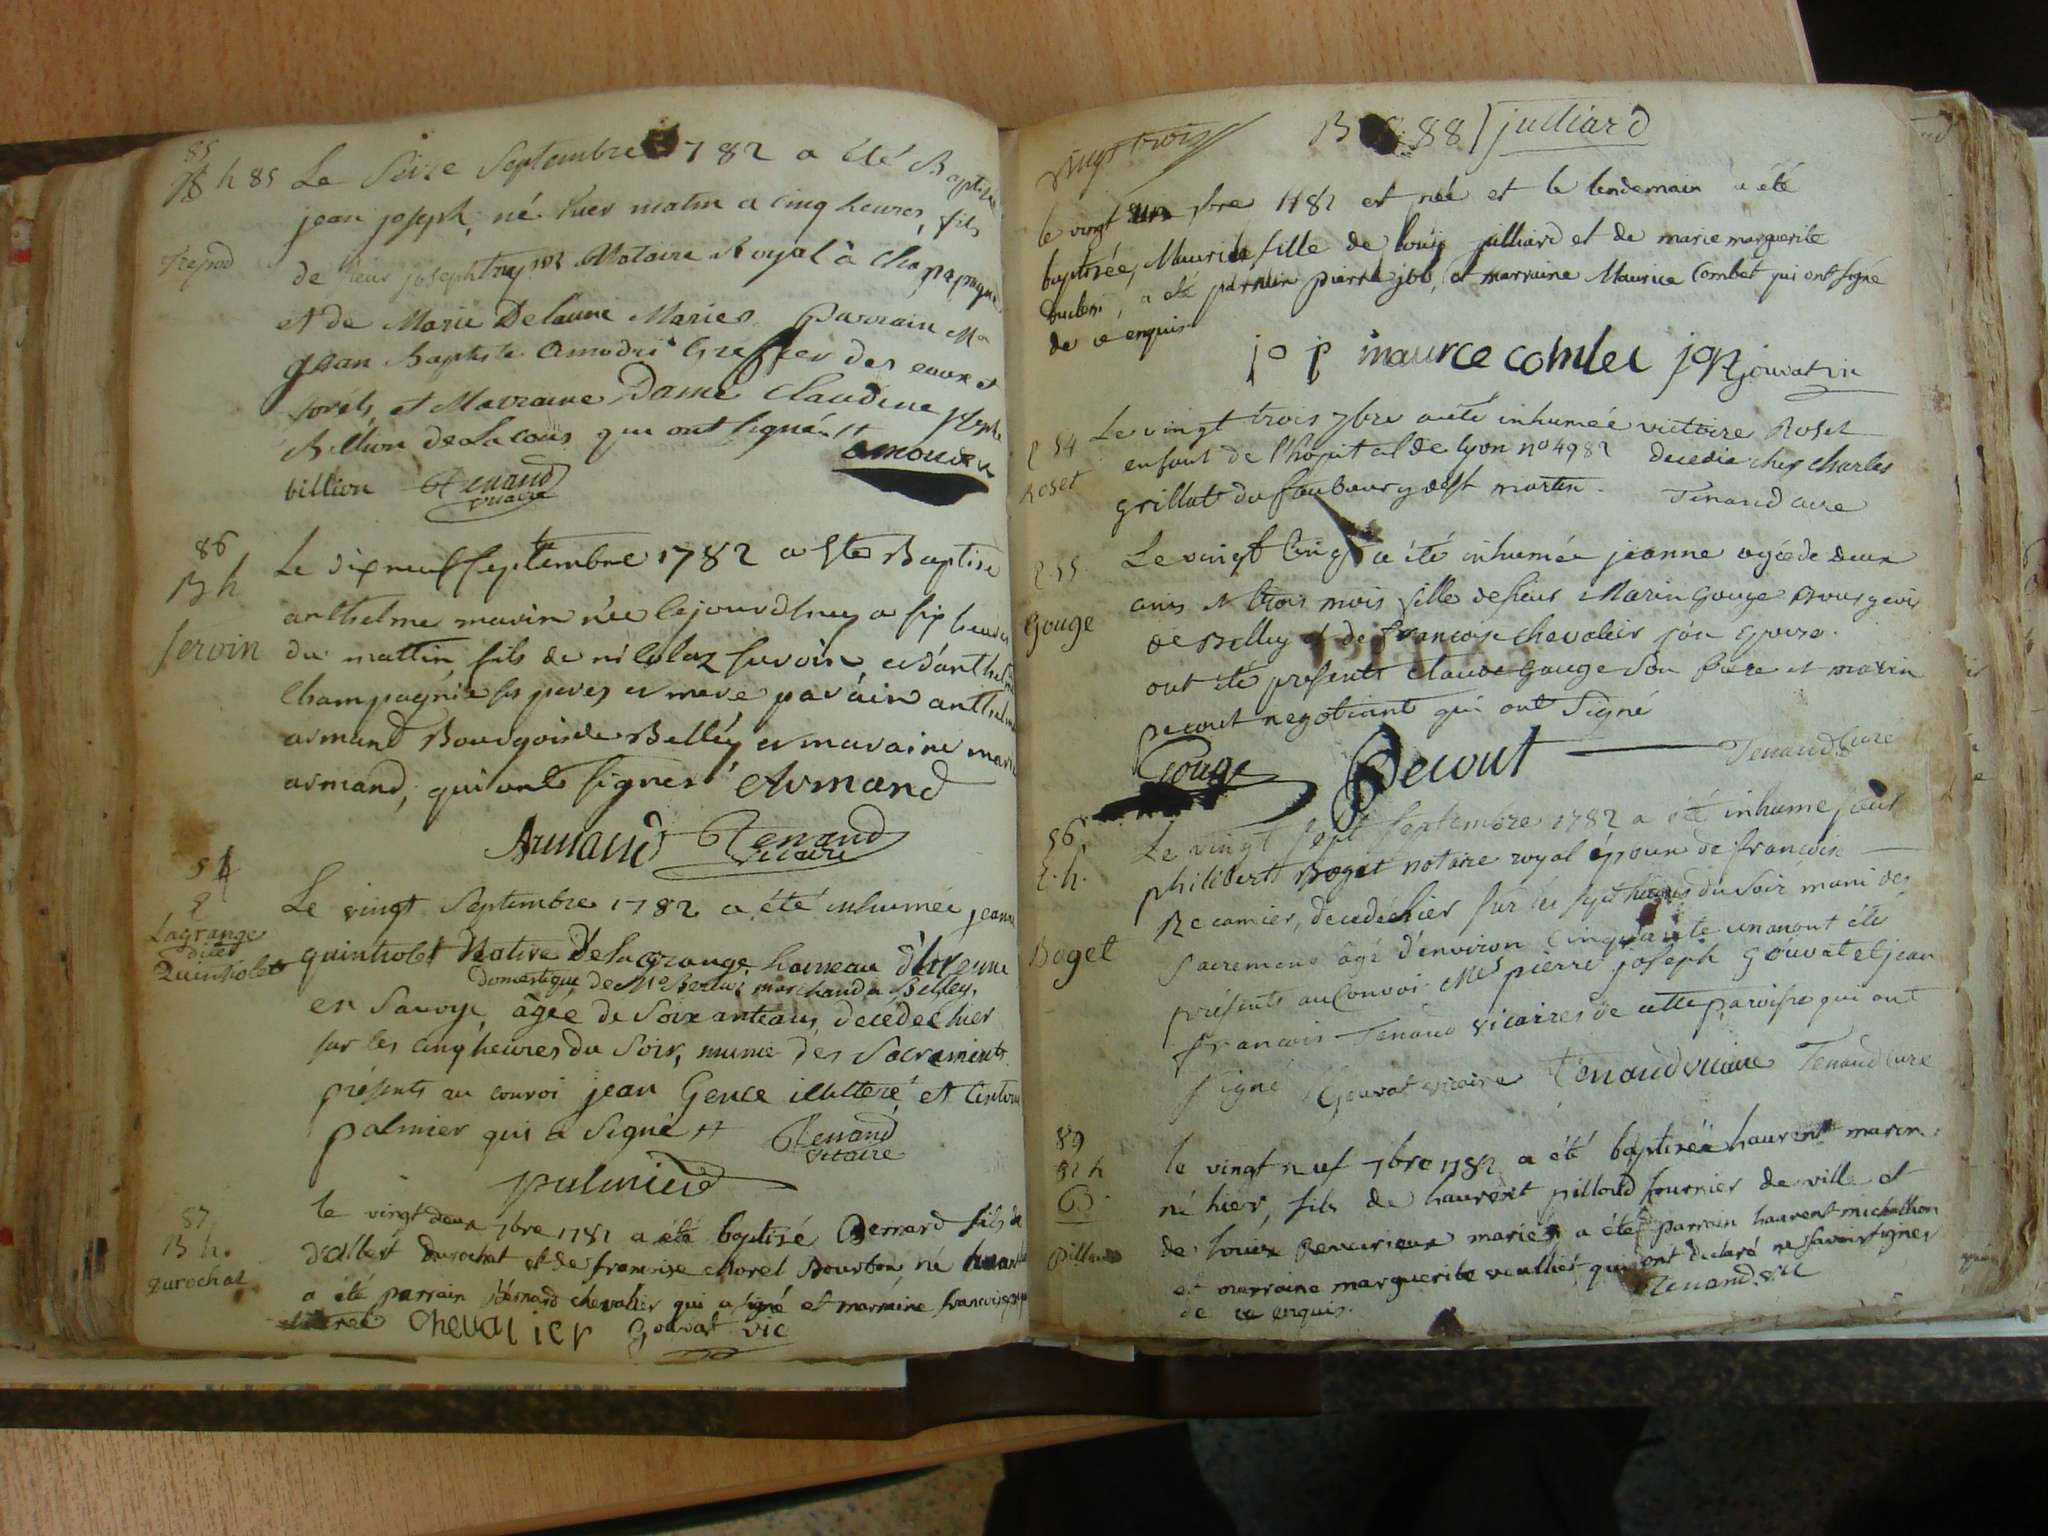 85
B h 85
Le Seize Septembre 1782 a été Baptisé
jean joseph, né hier matin a cinq heures, fils
de sieur joseph Notaire Royal à
et de Marie Delaune Mariés. Parrain Mr
jean Baptiste Greffier des eaux et
forêts, et Marraine Dame Claudine
Billion Delacous qui ont signés
billion Tenand
vicaire
86
B h
servoin
Le dixneuf septembre 1782 a été Baptisé
anthelme marin née lejourdhuy a six heures
du mattin, fils de nicolaz servoin, et d'anthelme
Champagnie ses peres et mere parain anthelme
armand Bourgois de Belley et maraine marie
armand, qui ont signes Armand
Armand Tenand
vicaire
Lagrange
dite
Quinviolet
Le vingt Septembre 1782 a été inhumée jeanne
quinviolet Native De la Grange hameau
Domestique De Mr marchand a Belley,
en Savoye, âgée de Soixante ans, decedée hier
sur les cinq heures du Soir, munie des Sacrements
présents au convoi jean Gence illitteré et
palmier qui a Signé Tenand
vicaire
palmier
87
B h.
durochat
le vingt deux 7bre 1782 a été baptisé Bernard fils
durochat et de françoise Morel Bourbon, né
a été parrain Bernard chevalier qui a signé et marraine françoise
Chevalier Gouvat vic
vingt trois
B 88 julliard
le vingt un 7bre 1782 est née et le lendemain a été
baptisée, Maurice fille de louis julliard et de marie marguerite
a été parrain pierre job, et marraine Maurice Combet qui ont signé
de ce enquis
jo p maurce combet Gouvat vic
54
Roset
Le vingt trois 7bre a été inhumée victoire Roset
enfant de l'hopital de lyon no 4982 decedée chez charles
grillat du faubourg de st martin. Tenand cure
55
Gouge
Le vingt cinq a été inhumée jeanne agée de deux
ans et trois mois fille de sieur Marin Gouge Bourgeois
de Belley et de françoise chevalier son epouse.
ont été presents Claude Gouge son frere et marin
pecout negotiant qui ont Signé
Gouge Pecout Tenand Cure
56
h.
Boget
Le vingt sept Septembre 1782 a été inhumé sieur
philibert Boget notaire royal epoux de françoise
Recamier, decedé hier sur les sept heures du soir muni des
sacremens agé d'environ Cinquante un ans ont été
présents au Convoi Mes pierre joseph Gouvat et jean
francois Tenand vicaires de cette paroisse qui ont
signé Gouvat vicaire Tenand vicaire Tenand Cure
89
B h
63
Pilloud
le vingt neuf 7bre 1782 a été baptisé haurent marin
né hier, fils de haurent pilloud fournier de ville et
de louise mariés a été parrain haurent michallon
et marraine marguerite veulliet qui ont déclaré ne savoir signer
de ce enquis. Tenand vic